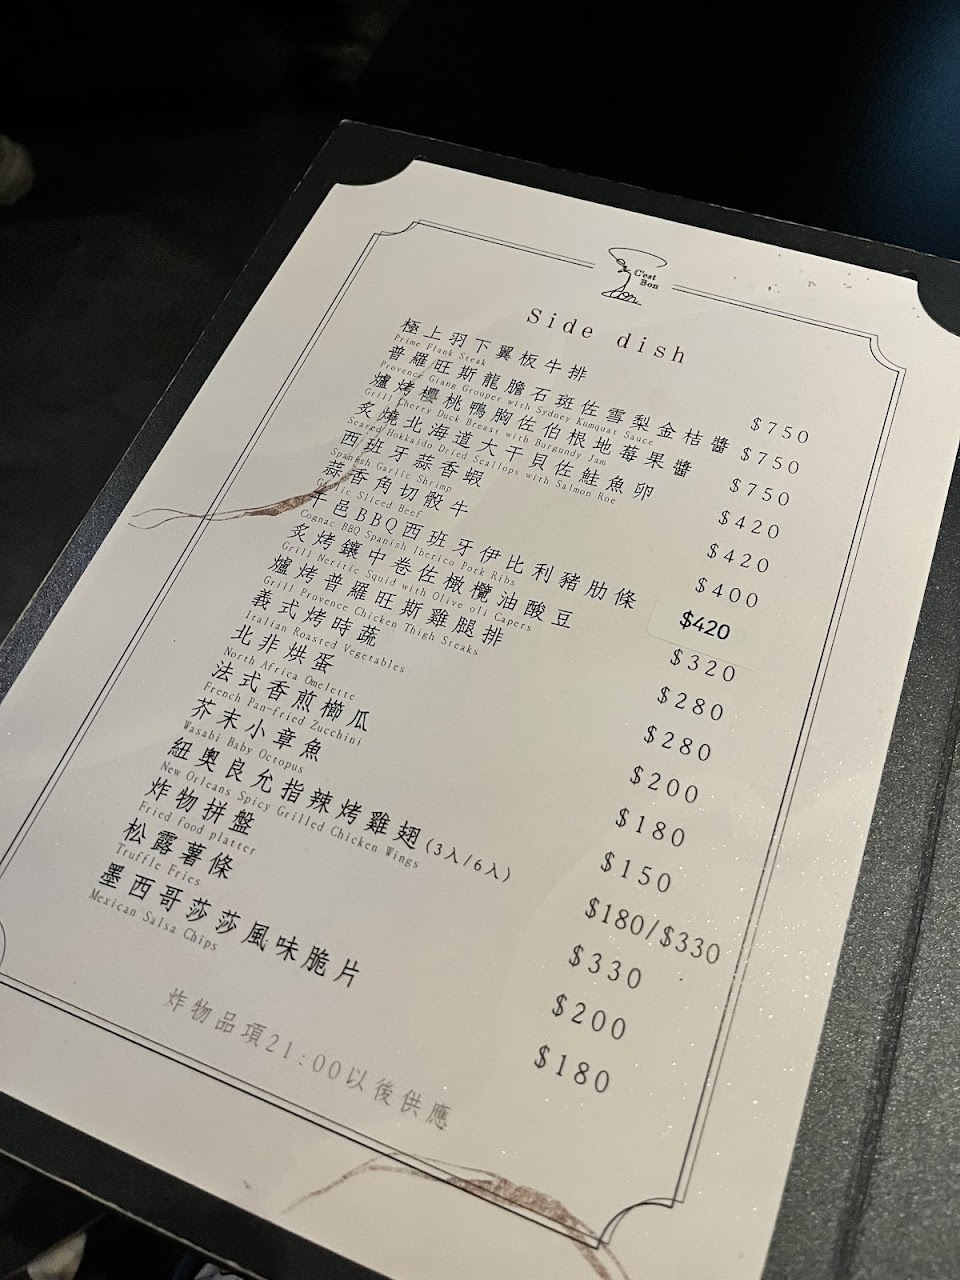 C'est
Bon
Side dish
極上羽下翼板牛排 $750
Prime Flank Steak
普羅旺斯龍膽石班佐雪梨金桔醬 $750
Provence Giang Grouper with Sydney Kumquat Sauce
爐烤櫻桃鴨胸佐伯根地莓果醬 $750
Grill Cherry Duck Breast with Burgundy Jam
炙燒北海道大干貝佐鮭魚卵 $420
Seared Hokkaido Dried Scallops with Salmon Roe
西班牙蒜香蝦 $420
Spanish Garlic Shrimp
蒜香角切骰牛 $400
Garlic Sliced Beef
干邑BBQ西班牙伊比利豬肋條 $420
Cognac BBQ Spanish Iberico Pork Ribs
炙烤鑲中卷佐橄欖油酸豆 $320
Grill Neritic Squid with Olive oli Capers
爐烤普羅旺斯雞腿排 $280
Grill Provence Chicken Thigh Steaks
義式烤時蔬 $280
Italian Roasted Vegetables
北非烘蛋 $200
North Africa Omelette
法式香煎櫛瓜 $180
French Pan-fried Zucchini
芥末小章魚 $150
Wasabi Baby Octopus
紐奧良允指辣烤雞翅(3入/6入) $180/$330
New Orleans Spicy Grilled Chicken Wings
炸物拼盤 $330
Fried food platter
松露薯條 $200
Truffle Fries
墨西哥莎莎風味脆片 $180
Mexican Salsa Chips
炸物品項21:00以後供應